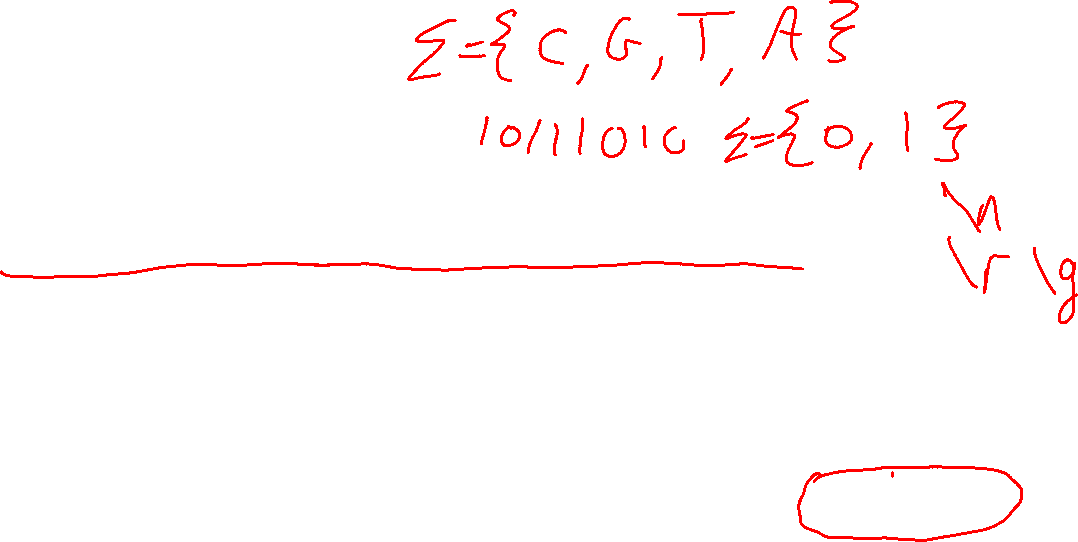 Σ={C,G,T,A}
10111010 Σ={0,1}
\n
\r \g